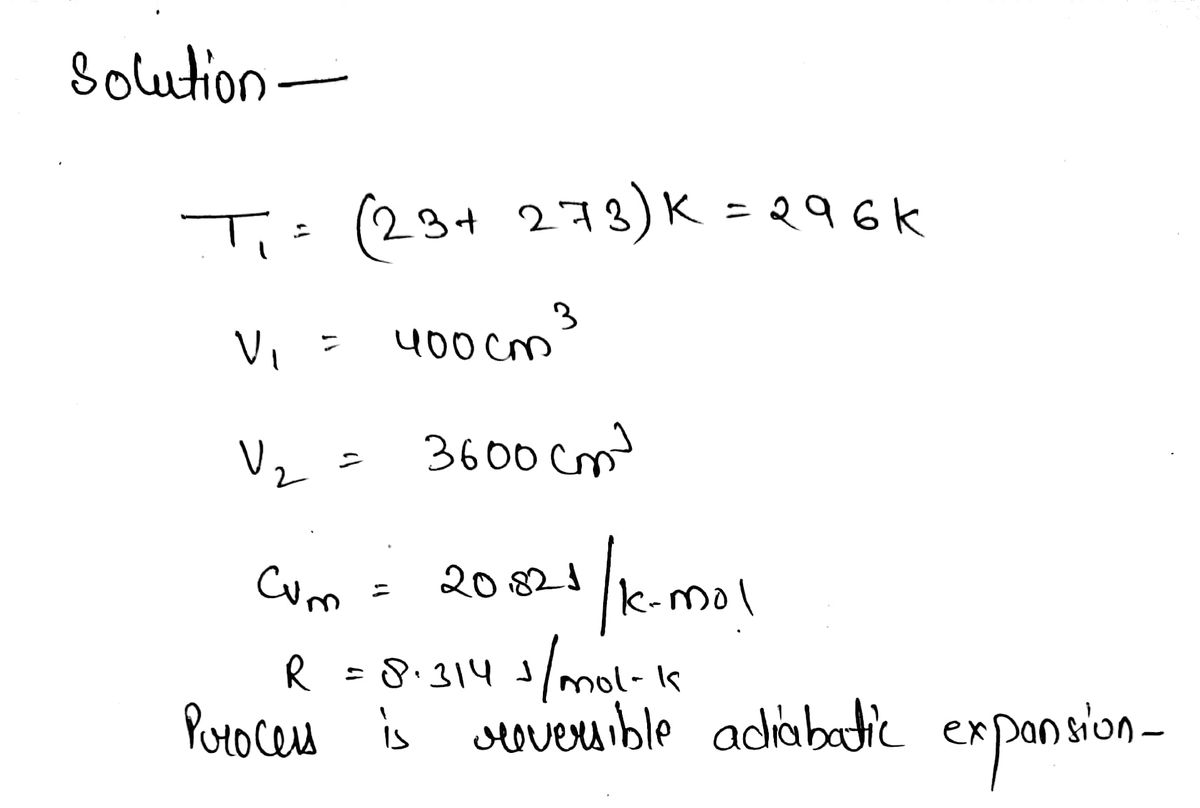 Solution —
T₁ = (23 + 273) K = 296 K
V₁ = 400 cm³
V₂ = 3600 cm³
Cvm = 20.82 J/K-mol
R = 8.314 J/mol-K
Process is reversible adiabatic expansion -